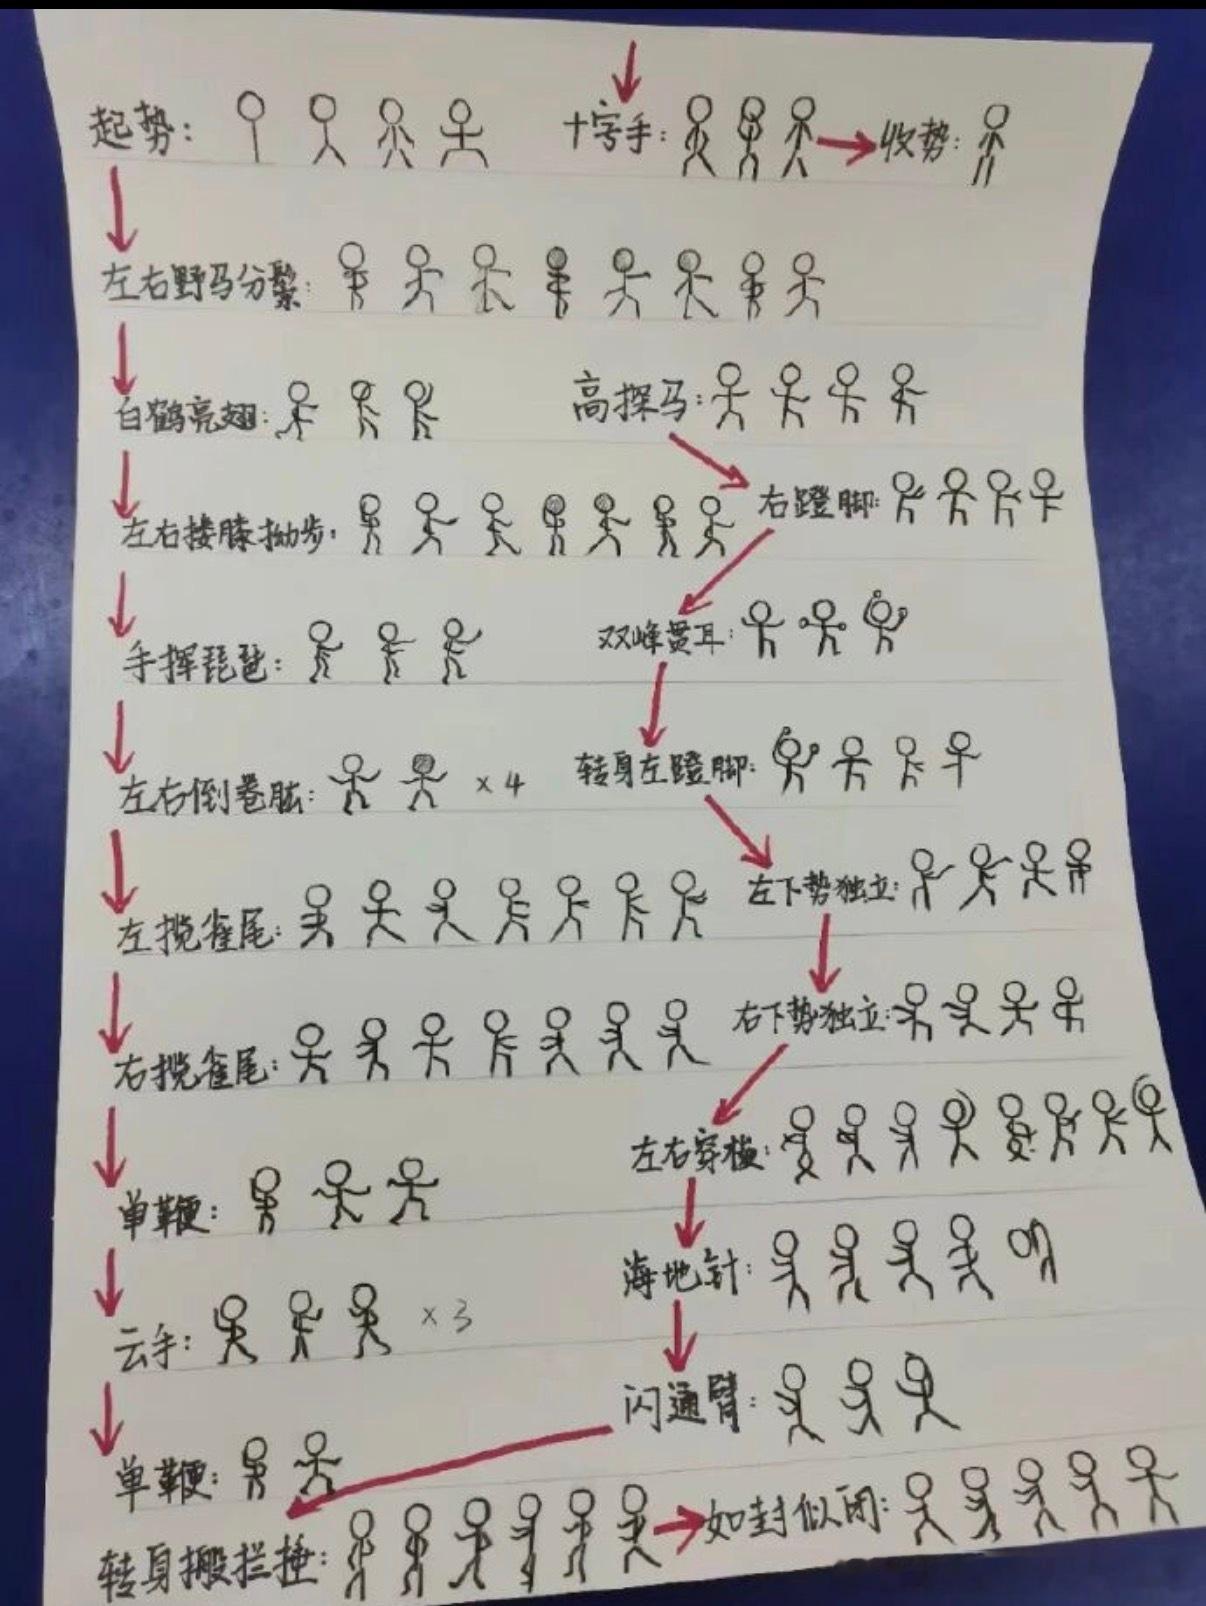 起势：
十字手：
收势：
左右野马分鬃：
白鹤亮翅：
高探马：
左右搂膝拗步：
右蹬脚：
手挥琵琶：
双峰贯耳：
左右倒卷肱： ×4
转身左蹬脚：
左揽雀尾：
左下势独立：
右揽雀尾：
右下势独立：
单鞭：
左右穿梭：
云手： ×3
海地针：
单鞭：
闪通臂：
转身搬拦捶：
如封似闭：